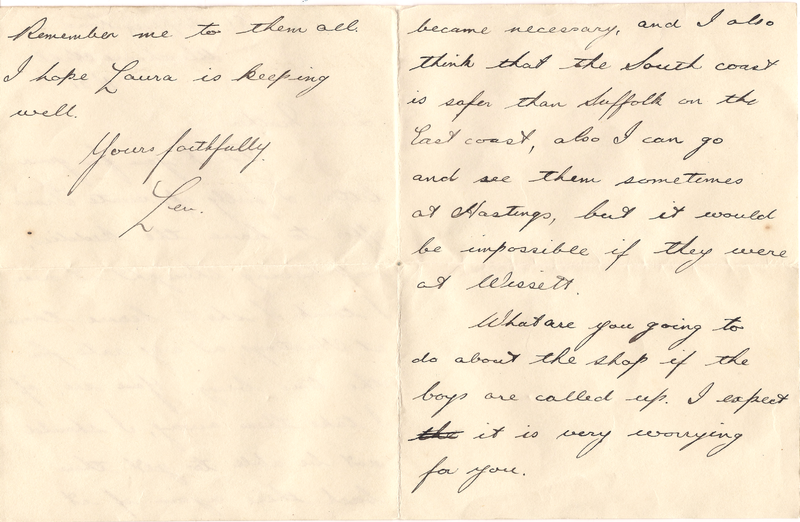 Remember me to them all.
I hope Laura is keeping
well.
Yours faithfully.
Len.
became necessary, and I also
think that the South coast
is safer than Suffolk on the
East coast, also I can go
and see them sometimes
at Hastings, but it would
be impossible if they were
at Wissett.
What are you going to
do about the shop if the
boys are called up. I expect
the it is very worrying
for you.